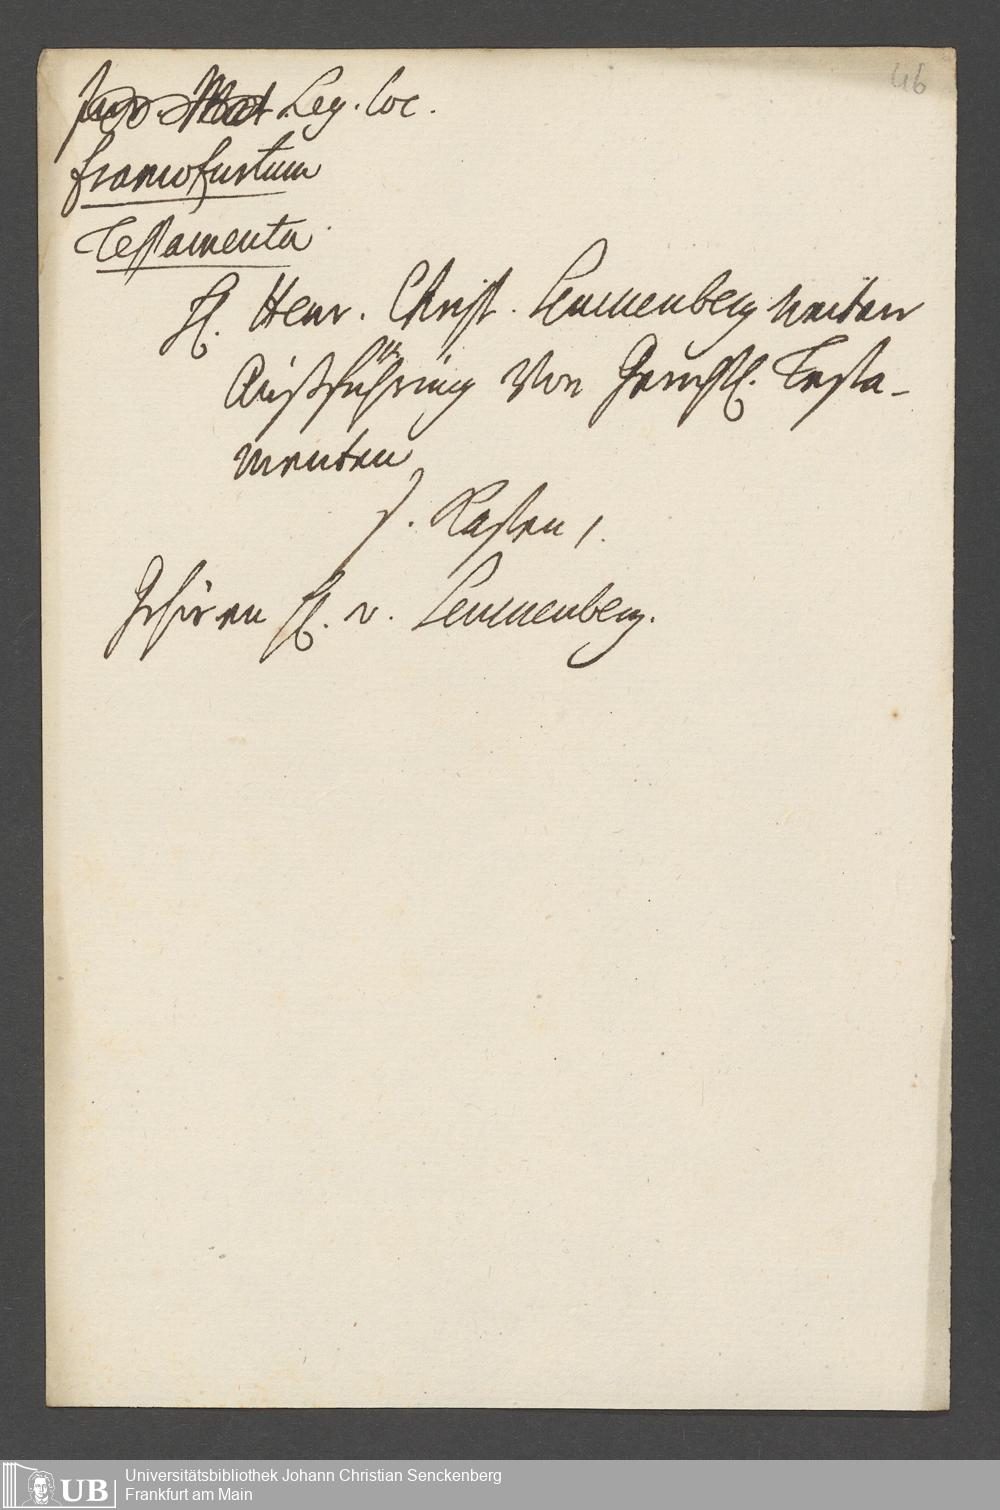 46
Leg. loc.
francofurtum
Testamenta.
H. Henr. Christ. Senckenberg weitere
Außführung Von Gerichtl. Testa-
menten
s. Kasten 1.
Gehören H. v. Senckenberg.
UB
Universitätsbibliothek Johann Christian Senckenberg
Frankfurt am Main